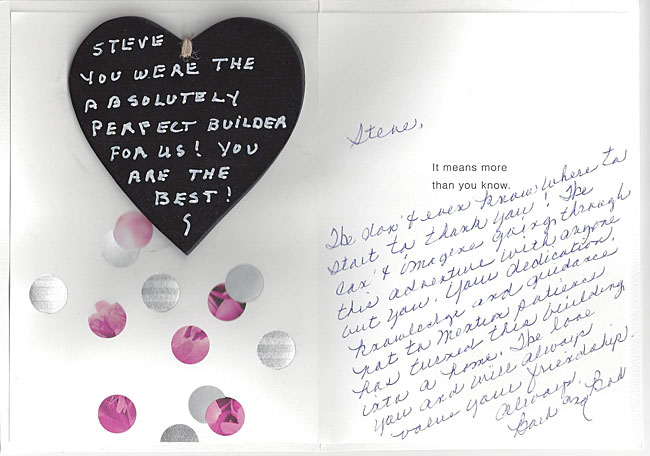 STEVE
YOU WERE THE
ABSOLUTELY
PERFECT BUILDER
FOR US! YOU
ARE THE
BEST!
Steve,
It means more
than you know.
We don't even know where to
start to thank you! We
can't imagine going through
this adventure with anyone
but you. Your dedication,
knowledge and guidance
not to mention patience
has turned this building
into a home. We love
you and will always
value your friendship.
Always,
Barb and Bob